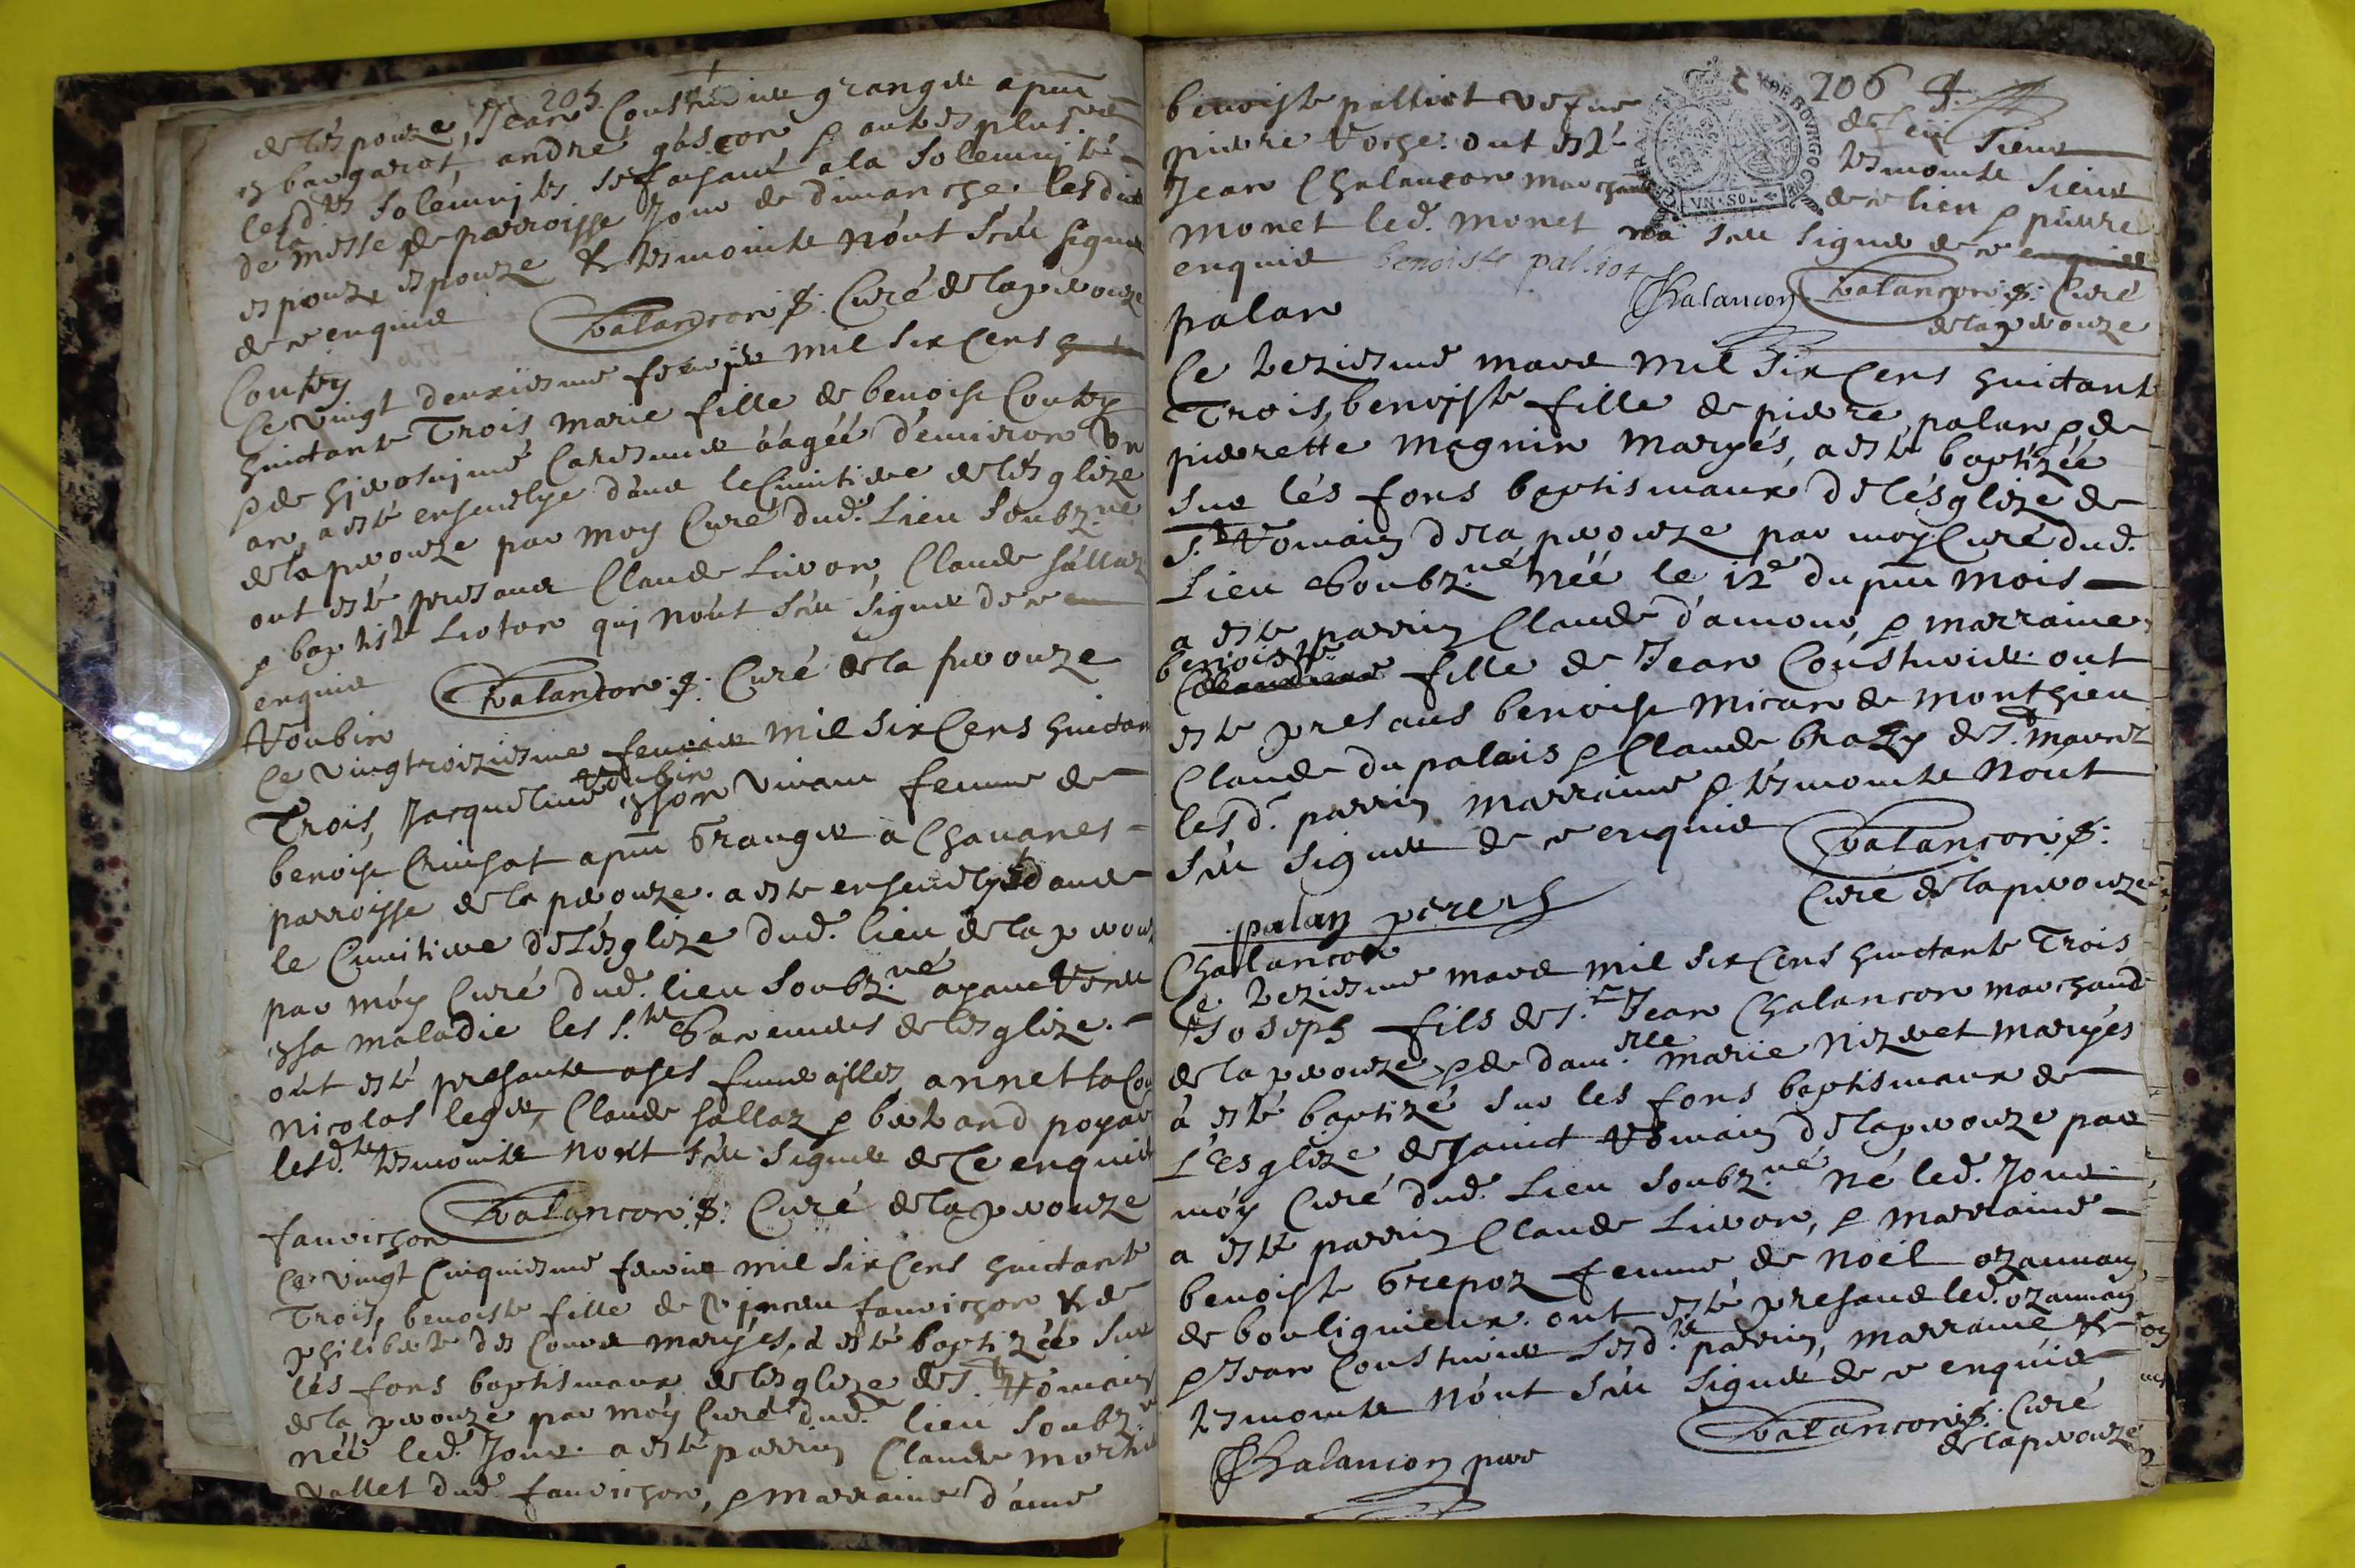 205
de l'éspouze, Jean Cousturier granger apnt
en bargarot, andré gascon & autres plus.rs
lesd.tes solemnités se faisant a la solemnité
de la messe de parroisse jour de dimanche. lesdits
espoux, espouze & tesmoints n'ont sceu signer
de ce enquis
Chalancon p. Curé de la perouze
Coutey
Ce vingt deuxiesme feurier mil six Cens
huictante Trois Marie fille de benoist Coutey
& de aagée d'enuiron Un
an, a esté enseuelye dans le Cimitiere de l'esglize
de la perouze par moy Curé dud. Lieu Soubz.né
ont esté presans Claude Liuron, Claude sallaz
& baptiste Lioton quj n'ont sceu signer de ce
enquis
Chalancon p. Curé de la perouze
Roubin
Ce vingtroiziesme feurier mil six Cens huictan
Trois, Jacqueline Roubin en son viuant femme de
benoist Cruisat apnt Granger a Chauanes
parroisse de la perouze. a esté enseuelye dans
le Cimitiere de l'ésglize dud. lieu de la perouz
par môy Curé dud. lieu Soubz.né ayant receu
en sa maladie les S.ts Sacremens de l'esglize.
ont esté presants a ses funerailles annet la Cou
Nicolas leger, Claude sallaz & bertrand poyar
lesd.ts tesmoints n'ont sceu signer de Ce enquis
Chalancon p. Curé de la perouze
faurichon
Ce vingt Cinquiesme feurier mil six Cens huictante
Trois, benoiste fille de Vincen faurichon & de
philiberte des Cours maryés, a esté baptizée sur
les fons baptismaux de l'esglize de S.t Romain
de la perouze par moy Curé dud. lieu Soubz.né
née led. Jour. a esté parrin Claude
vallet dud. faurichon, & marraine d'ame
206
benoiste palliot vefue de feu Sieur
pierre Vorge. ont esté tesmoints Sieur
Jean Chalancon marchand de ce lieu & pierre
monet led. monet n'a sceu signer de ce enquis
enquis benoiste palliot
Chalancon Chalancon p. Curé
de la perouze
VN SOL
palan
Ce treziesme mars mil six Cens huictante
Trois, benoiste fille de pierre palan & de
pierrette magnin maryés, a esté baptizée
sur les fons baptismaux de l'ésglize de
S.t Romain de la perouze par moy Curé dud.
Lieu Soubz.né née le 12e du pnt mois
a esté parrin Claude d'amour, & marraine
benoiste
Claudine fille de Jean Cousturier. ont
esté presans benoist mican de monthieu
Claude du palais & Claude brazy de S.t maurez
lesd. parrin marraine & tesmoints n'ont
sceu signer de ce enquis
Chalancon p.
Curé de la perouze
palan pere
Chalancon
Ce treziesme mars mil six Cens huictante Trois
Joseph fils de s.r Jean Chalancon marchand
de la perouze & de dam.elle marie Nizeret maryés
à esté baptizé sur les fons baptismaux de
L'Esglize de sainct Romain de la perouze par
môy Curé dud. Lieu Soubz.né né led. Jour
a esté parrin Claude Liuron, & marraine
benoiste Grepoz femme de Noël ozannan
de boulignieux. ont esté presans led. ozannan
& Jean Cousturier lesd.ts parrin, marraine &
tesmoints n'ont sceu signer de ce enquis
Chalancon p. Curé
de la perouze
Chalancon pere